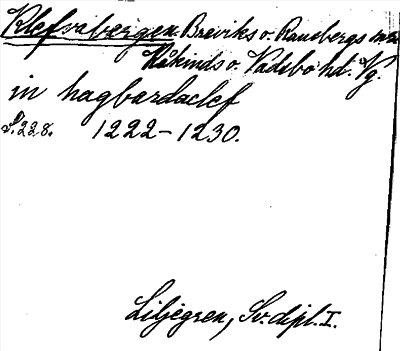 Klefvabergen Breviks o. Ransbergs snr
Kåkinds o. Vadsbo hd. Vg.
in hagbardaclef
S. 228. 1222-1230.
Liljegren, Sv. dipl. I.